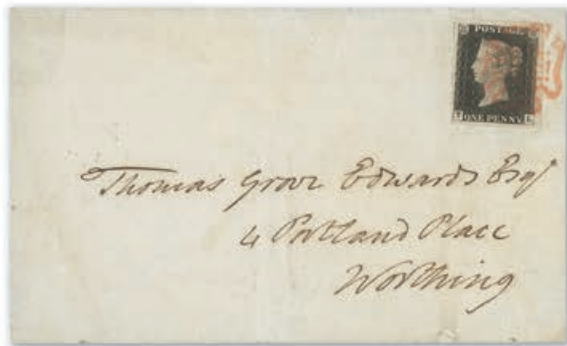 POSTAGE
ONE PENNY
Thomas Grove Edwards Esqr
4 Portland Place
Worthing